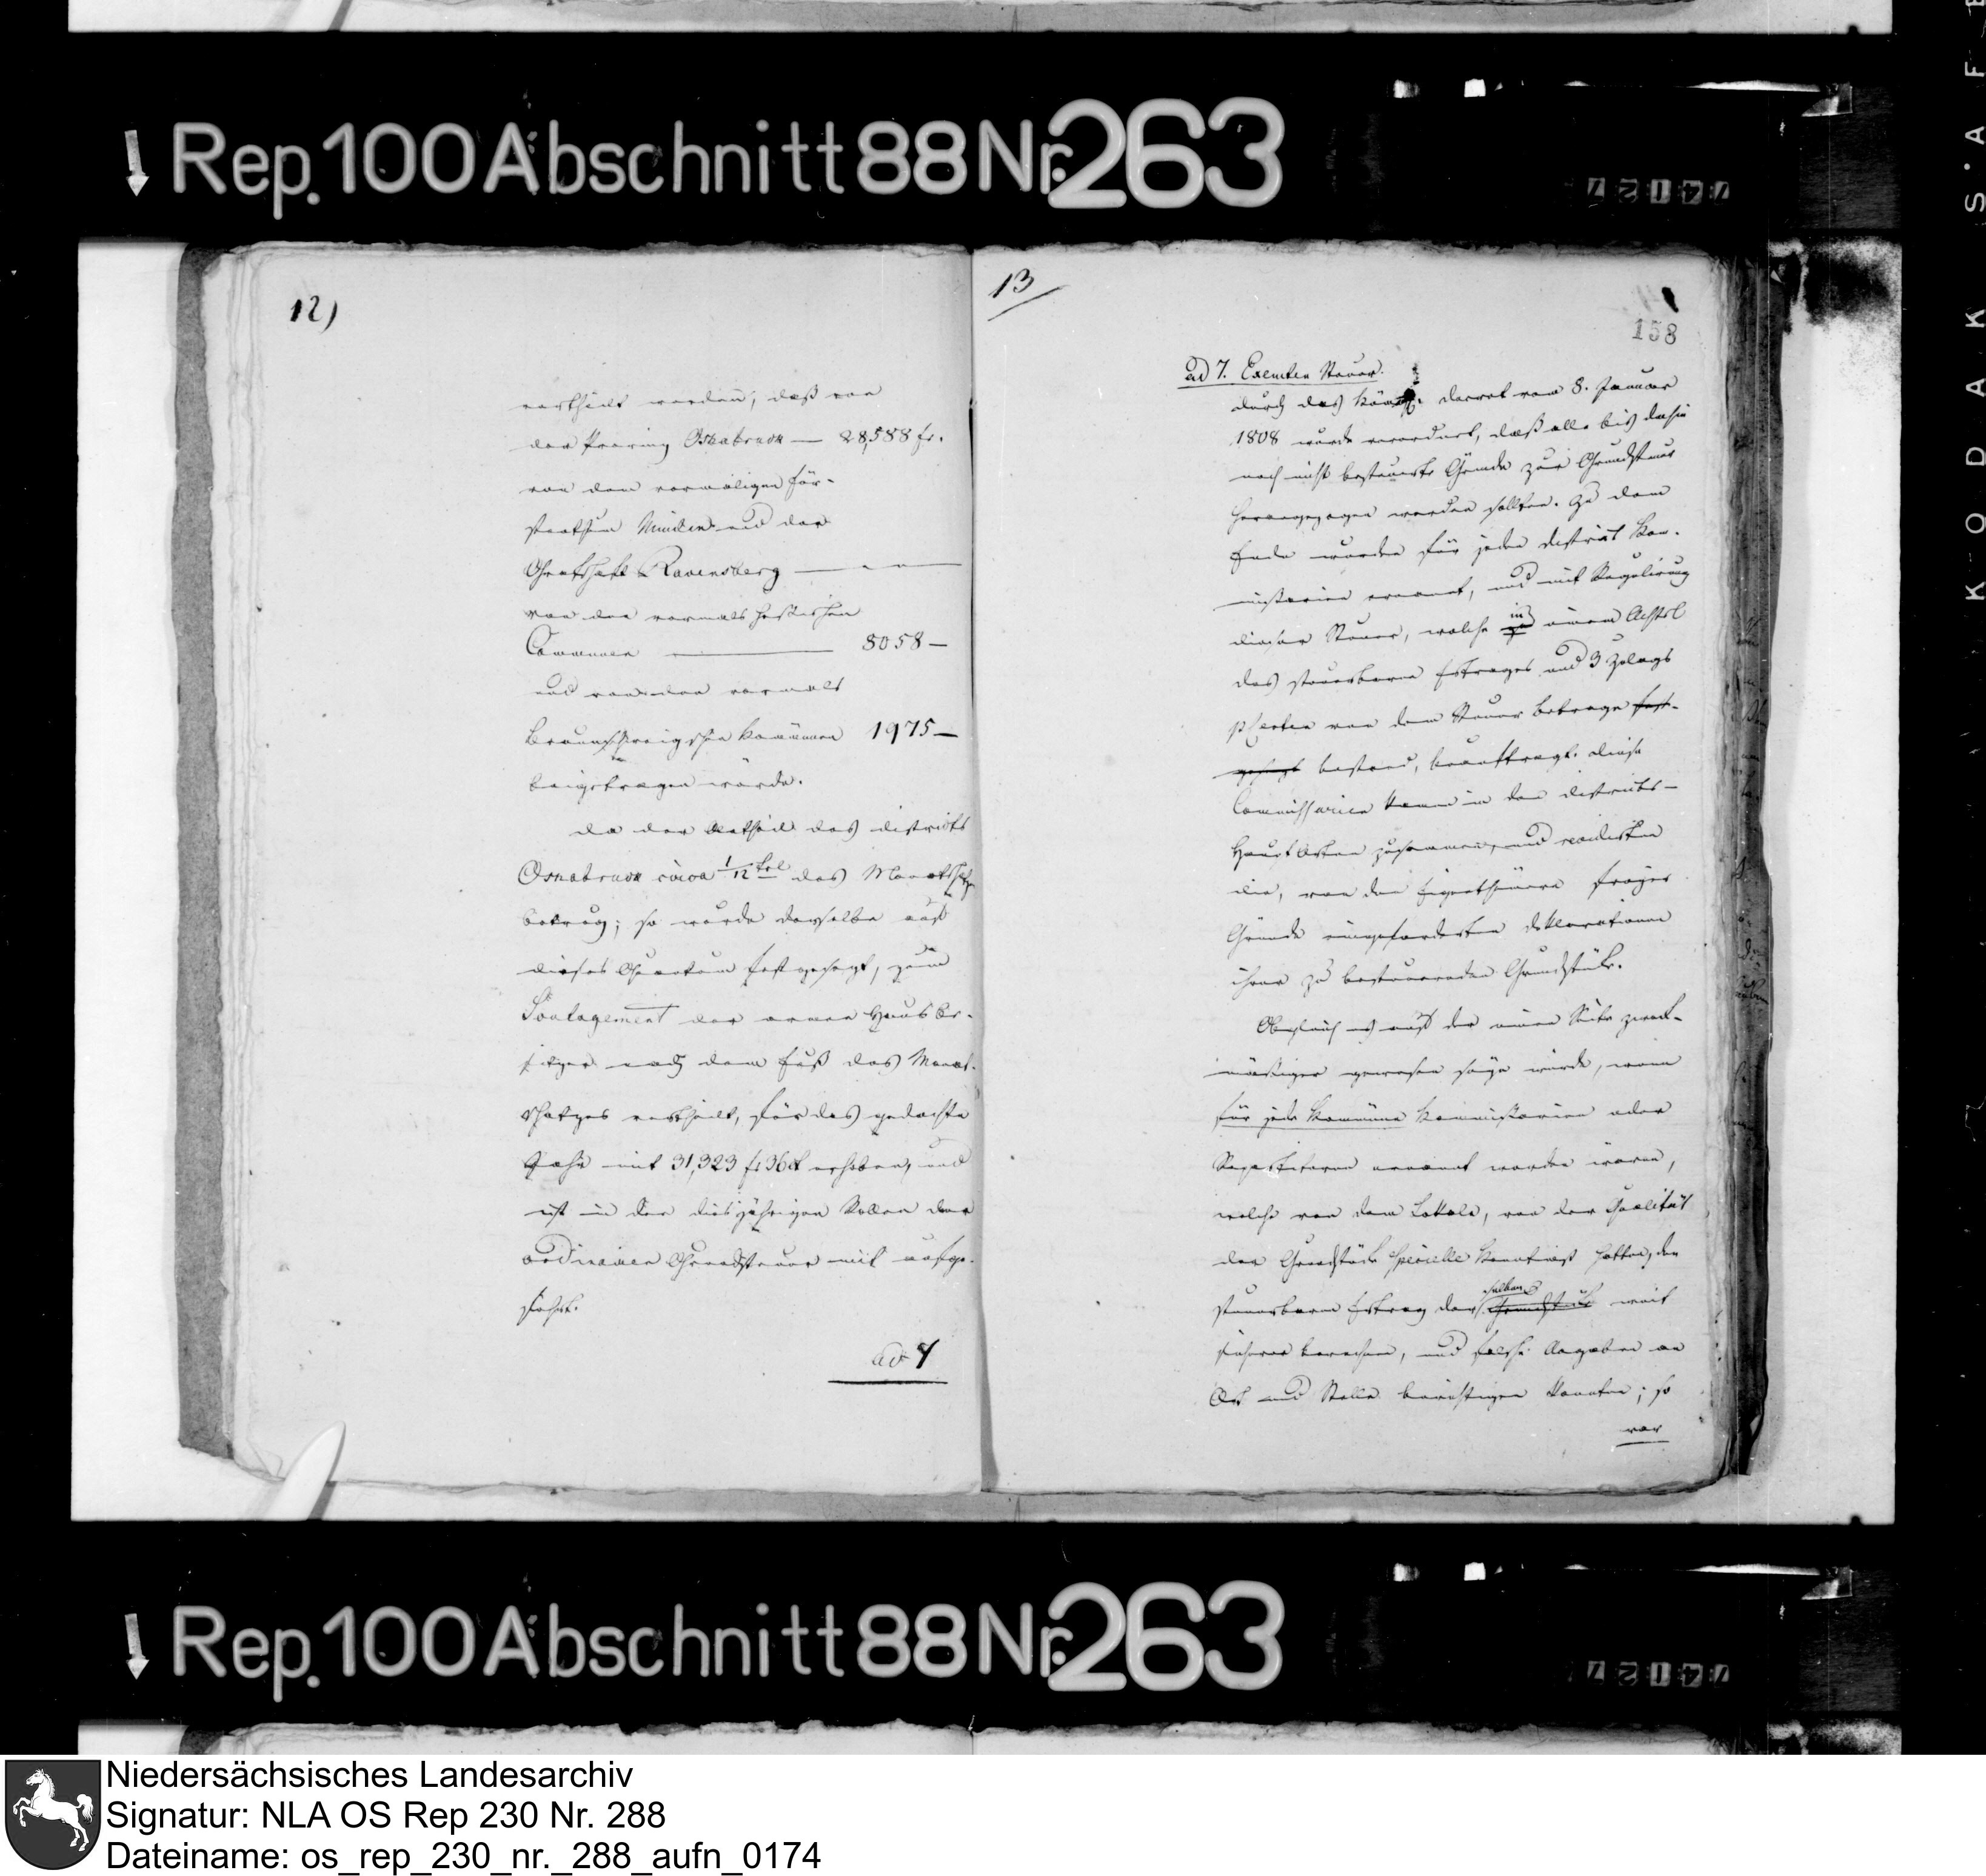 Rep. 100 Abschnitt 88 Nr. 263
12)
vertheilt werden, daß von
der Provinz Osnabruck — 28,588 fr.
von dem vormaligen Für-
stenthum Minden und der
Grafschaft Ravensberg — " —
von den vormals Hessischen
Communen — 8058 —
und von den vormals
Braunschweigschen Kommunen 1975 —
beigetragen würde.
Da der Antheil des Districts
Osnabruck circa 1/12 tel des Monatschatzes
betrug; so wurde derselbe auf
dieses Quantum festgesezt, zum
Soulagement der armen Hausbe-
sitzer nach dem Fuß des Monat-
schatzes vertheilt, für das gedachte
Jahr mit 31,323 fr 36 ct erhoben, und
ist in den diesjährigen Rollen der
ordinairen Grundsteuer mit aufge-
führt.
ad 7
13
158
ad 7. Exemten Steuer.
Durch das Königl. Decret vom 8. Januar
1808 wurde verordnet, daß alle bis dahin
noch nicht besteuerte Gründe zur Grundsteuer
herangezogen werden sollten. Zu dem
Ende wurden für jeden District Kom-
missarien ernannt, und mit Regulirung
dieser Steuer, welche in einem Achtel
des steuerbaren Ertrages und 3 Zulags
pCenten von dem Steuer Betrage fest-
gesezt bestand, beauftragt. Diese
Commissarien kamen in den Districts-
Haupt Orten zusammen, und revidirten
die, von den Eigenthümern freyer
Gründe eingeforderten Deklarationen
ihrer zu besteuernden Grundstücke.
Obgleich es auf der einen Seite zweck-
mäßiger gewesen seyn würde, wenn
für jede Kommüne Kommissarien oder
Repartiteren ernannt worden wären,
welche von dem Lokale, von der Qualität
der Grundstücke specielle Kenntniß hatten, den
steuerbaren Ertrag derselben Grundstücke weit
sicherer berechnen, und falsche Angaben an
Ort und Stelle berichtigen konnten; so
war
Rep. 100 Abschnitt 88 Nr. 263
KODAK SAFE
Niedersächsisches Landesarchiv
Signatur: NLA OS Rep 230 Nr. 288
Dateiname: os_rep_230_nr._288_aufn_0174